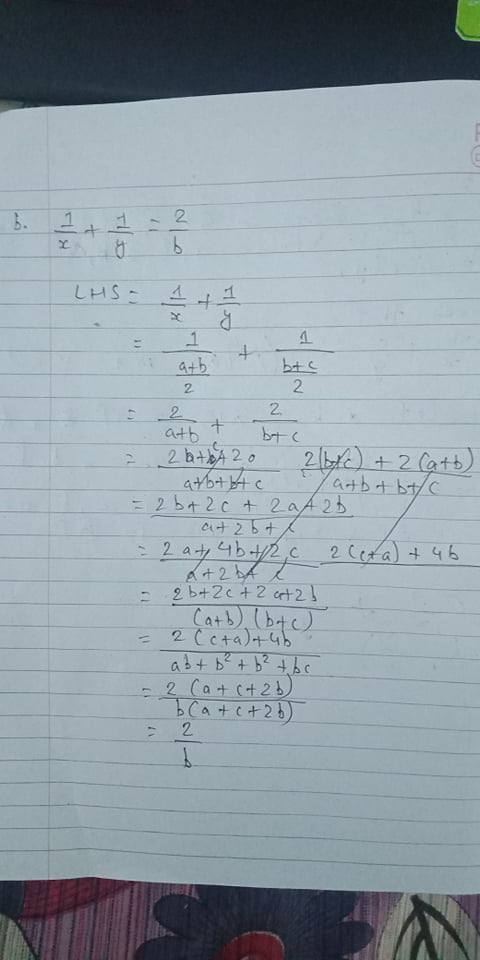 b. 1/x + 1/y = 2/b
LHS = 1/x + 1/y
= 1/((a+b)/2) + 1/((b+c)/2)
= 2/(a+b) + 2/(b+c)
2(b+c) + 2(a+b) / a+b+b+c
= (2b+2c+2a+2b)/(a+2b+c)
= (2a+4b+2c)/(a+2b+c) 2(c+a)+4b
= (2b+2c+2a+2b)/((a+b)(b+c))
= (2(c+a)+4b)/(ab+b²+b²+bc)
= (2(a+c+2b))/(b(a+c+2b))
= 2/b